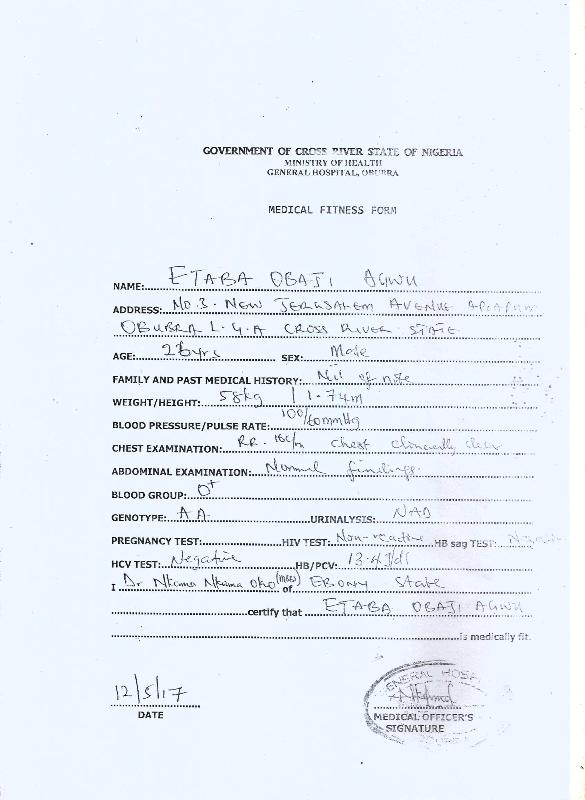 GOVERNMENT OF CROSS RIVER STATE OF NIGERIA
MINISTRY OF HEALTH
GENERAL HOSPITAL, OBUBRA
MEDICAL FITNESS FORM
NAME: ETABA OBAJI AGWU
ADDRESS: No. 3. NEW JERUSALEM AVENUE APIAPUM
OBUBRA L.G.A CROSS RIVER STATE
AGE: 26yrs SEX: Male
FAMILY AND PAST MEDICAL HISTORY: Nil of note
WEIGHT/HEIGHT: 58kg | 1.74m
BLOOD PRESSURE/PULSE RATE: 100/60mmHg
CHEST EXAMINATION: RR. 16c/m chest clinically clear
ABDOMINAL EXAMINATION: Normal findings.
BLOOD GROUP: O+
GENOTYPE: AA URINALYSIS: NAD
PREGNANCY TEST: HIV TEST: Non-reactive HB sag TEST:
HCV TEST: Negative HB/PCV: 13.4
I Dr Nkama Nkama Oko (MBBS) of EBONY State
certify that ETABA OBAJI AGWU
is medically fit.
12/5/17
DATE
GENERAL HOSP
MEDICAL OFFICER'S
SIGNATURE